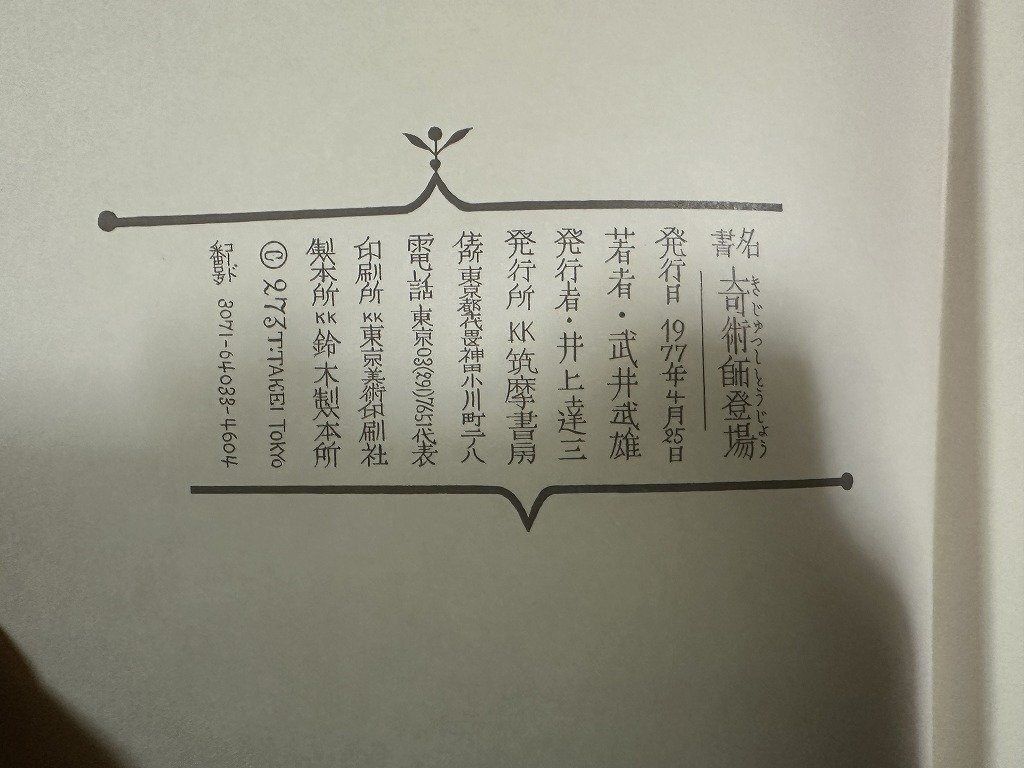 書名 奇術師登場
きじゅつしとうじょう
発行日 1977年4月25日
著者・武井武雄
発行者・井上達三
発行所 KK 筑摩書房
住所 東京都千代田区神田小川町二ノ八
電話 東京03(291)7651代表
印刷所 KK 東京美術印刷社
製本所 KK 鈴木製本所
© 273 T.TAKEI TOKYO
コード番号 3071-64033-4604